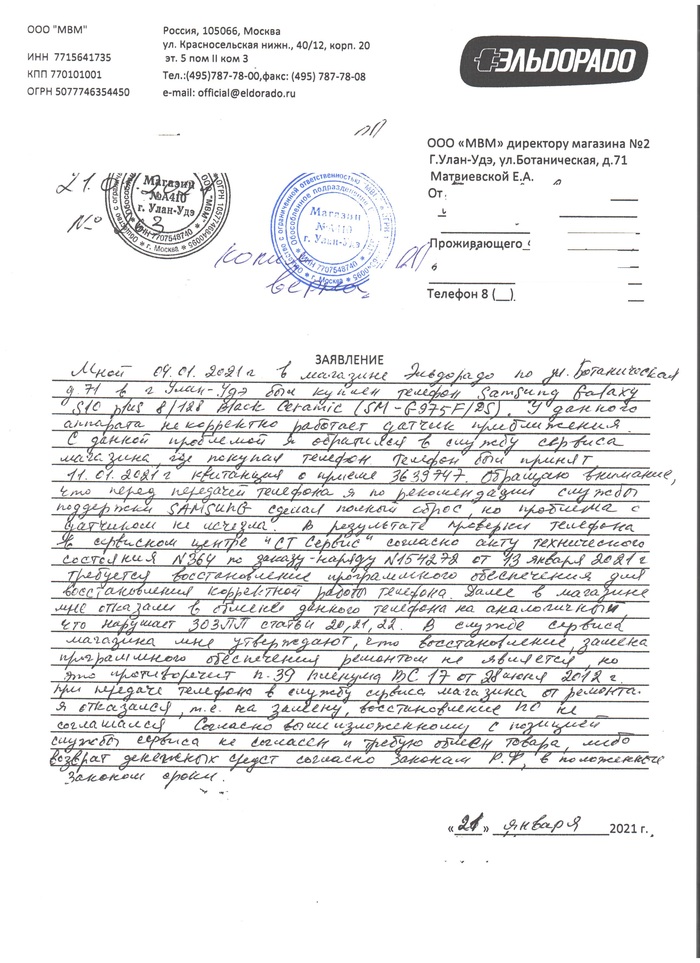 ООО "МВМ"
ИНН 7715641735
КПП 770101001
ОГРН 5077746354450
Россия, 105066, Москва
ул. Красносельская нижн., 40/12, корп. 20
эт. 5 пом II ком 3
Тел.:(495)787-78-00,факс: (495) 787-78-08
e-mail: official@eldorado.ru
ЭЛЬДОРАДО
ООО «МВМ» директору магазина №2
Г.Улан-Удэ, ул.Ботаническая, д.71
Матвиевской Е.А.
От
Проживающего
Телефон 8 (__)
21.0
№ 3
Магазин
№А410
г. Улан-Удэ
ИНН 7707548740
г. Москва
Магазин
№А410
г. Улан-Удэ
ИНН 7707548740
г. Москва
копия
верна
ЗАЯВЛЕНИЕ
Мной 04.01.2021г в магазине Эльдорадо по ул. Ботаническая
д 71 в г Улан-Удэ был куплен телефон Samsung Galaxy
S10 plus 8/128 Black Ceramic (SM-G975F/DS). У данного
аппарата некорректно работает датчик приближения
С данной проблемой я обратился в службу сервиса
магазина, где покупал телефон Телефон был принят
11.01.2021г квитанция о приеме 3639747. Обращаю внимание,
что перед передачей телефона я по рекомендации службы
поддержки SAMSUNG сделал полный сброс, но проблема с
датчиком не исчезла. В результате проверки телефона
в сервисном центре "СТ Сервис" согласно акту технического
состояния №364 по заказу-наряду №154272 от 13 января 2021г
требуется восстановление программного обеспечения для
восстановления корректной работы телефона. Далее в магазине
мне отказали в обмене данного телефона на аналогичный,
что нарушает ЗОЗПП статьи 20,21,22. В службе сервиса
магазина мне утверждают, что восстановление, замена
программного обеспечения ремонтом не является, но
это противоречит п.39 пленума ВС 17 от 28 июня 2012г.
При передаче телефона в службу сервиса магазина от ремонта
я отказался, т.е. на замену, восстановление ПО не
соглашался Согласно вышеизложенному с позицией
службы сервиса не согласен и требую обмен товара, либо
возврат денежных средст согласно законам Р.Ф, в положенные
законом сроки.
«21» января 2021 г.